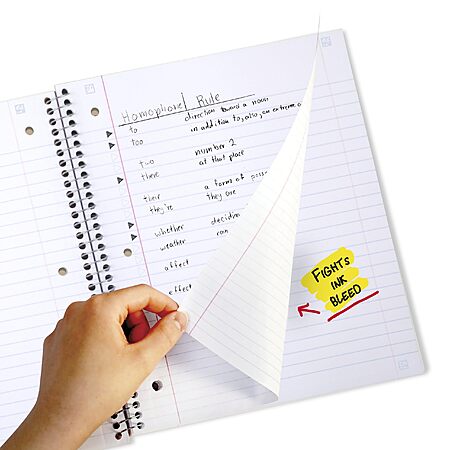 Homophone Rule
to direction toward a noun
too in addition to, also, an extreme
two number 2
there at that place
their a forms of
they're they are
whether
weather
affect
effect
FIGHTS
INK
BLEED